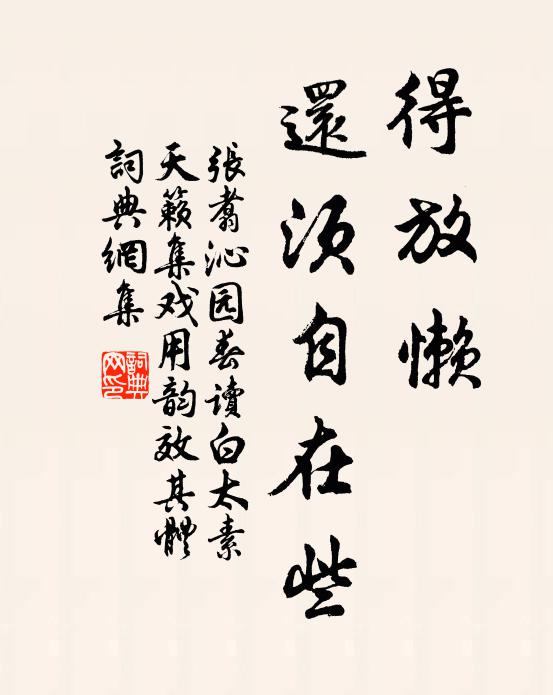 得放懒
還須自在些
張翥沁园春讀白太素
天籟集戏用韵效其體
詞典網集
詞典網印